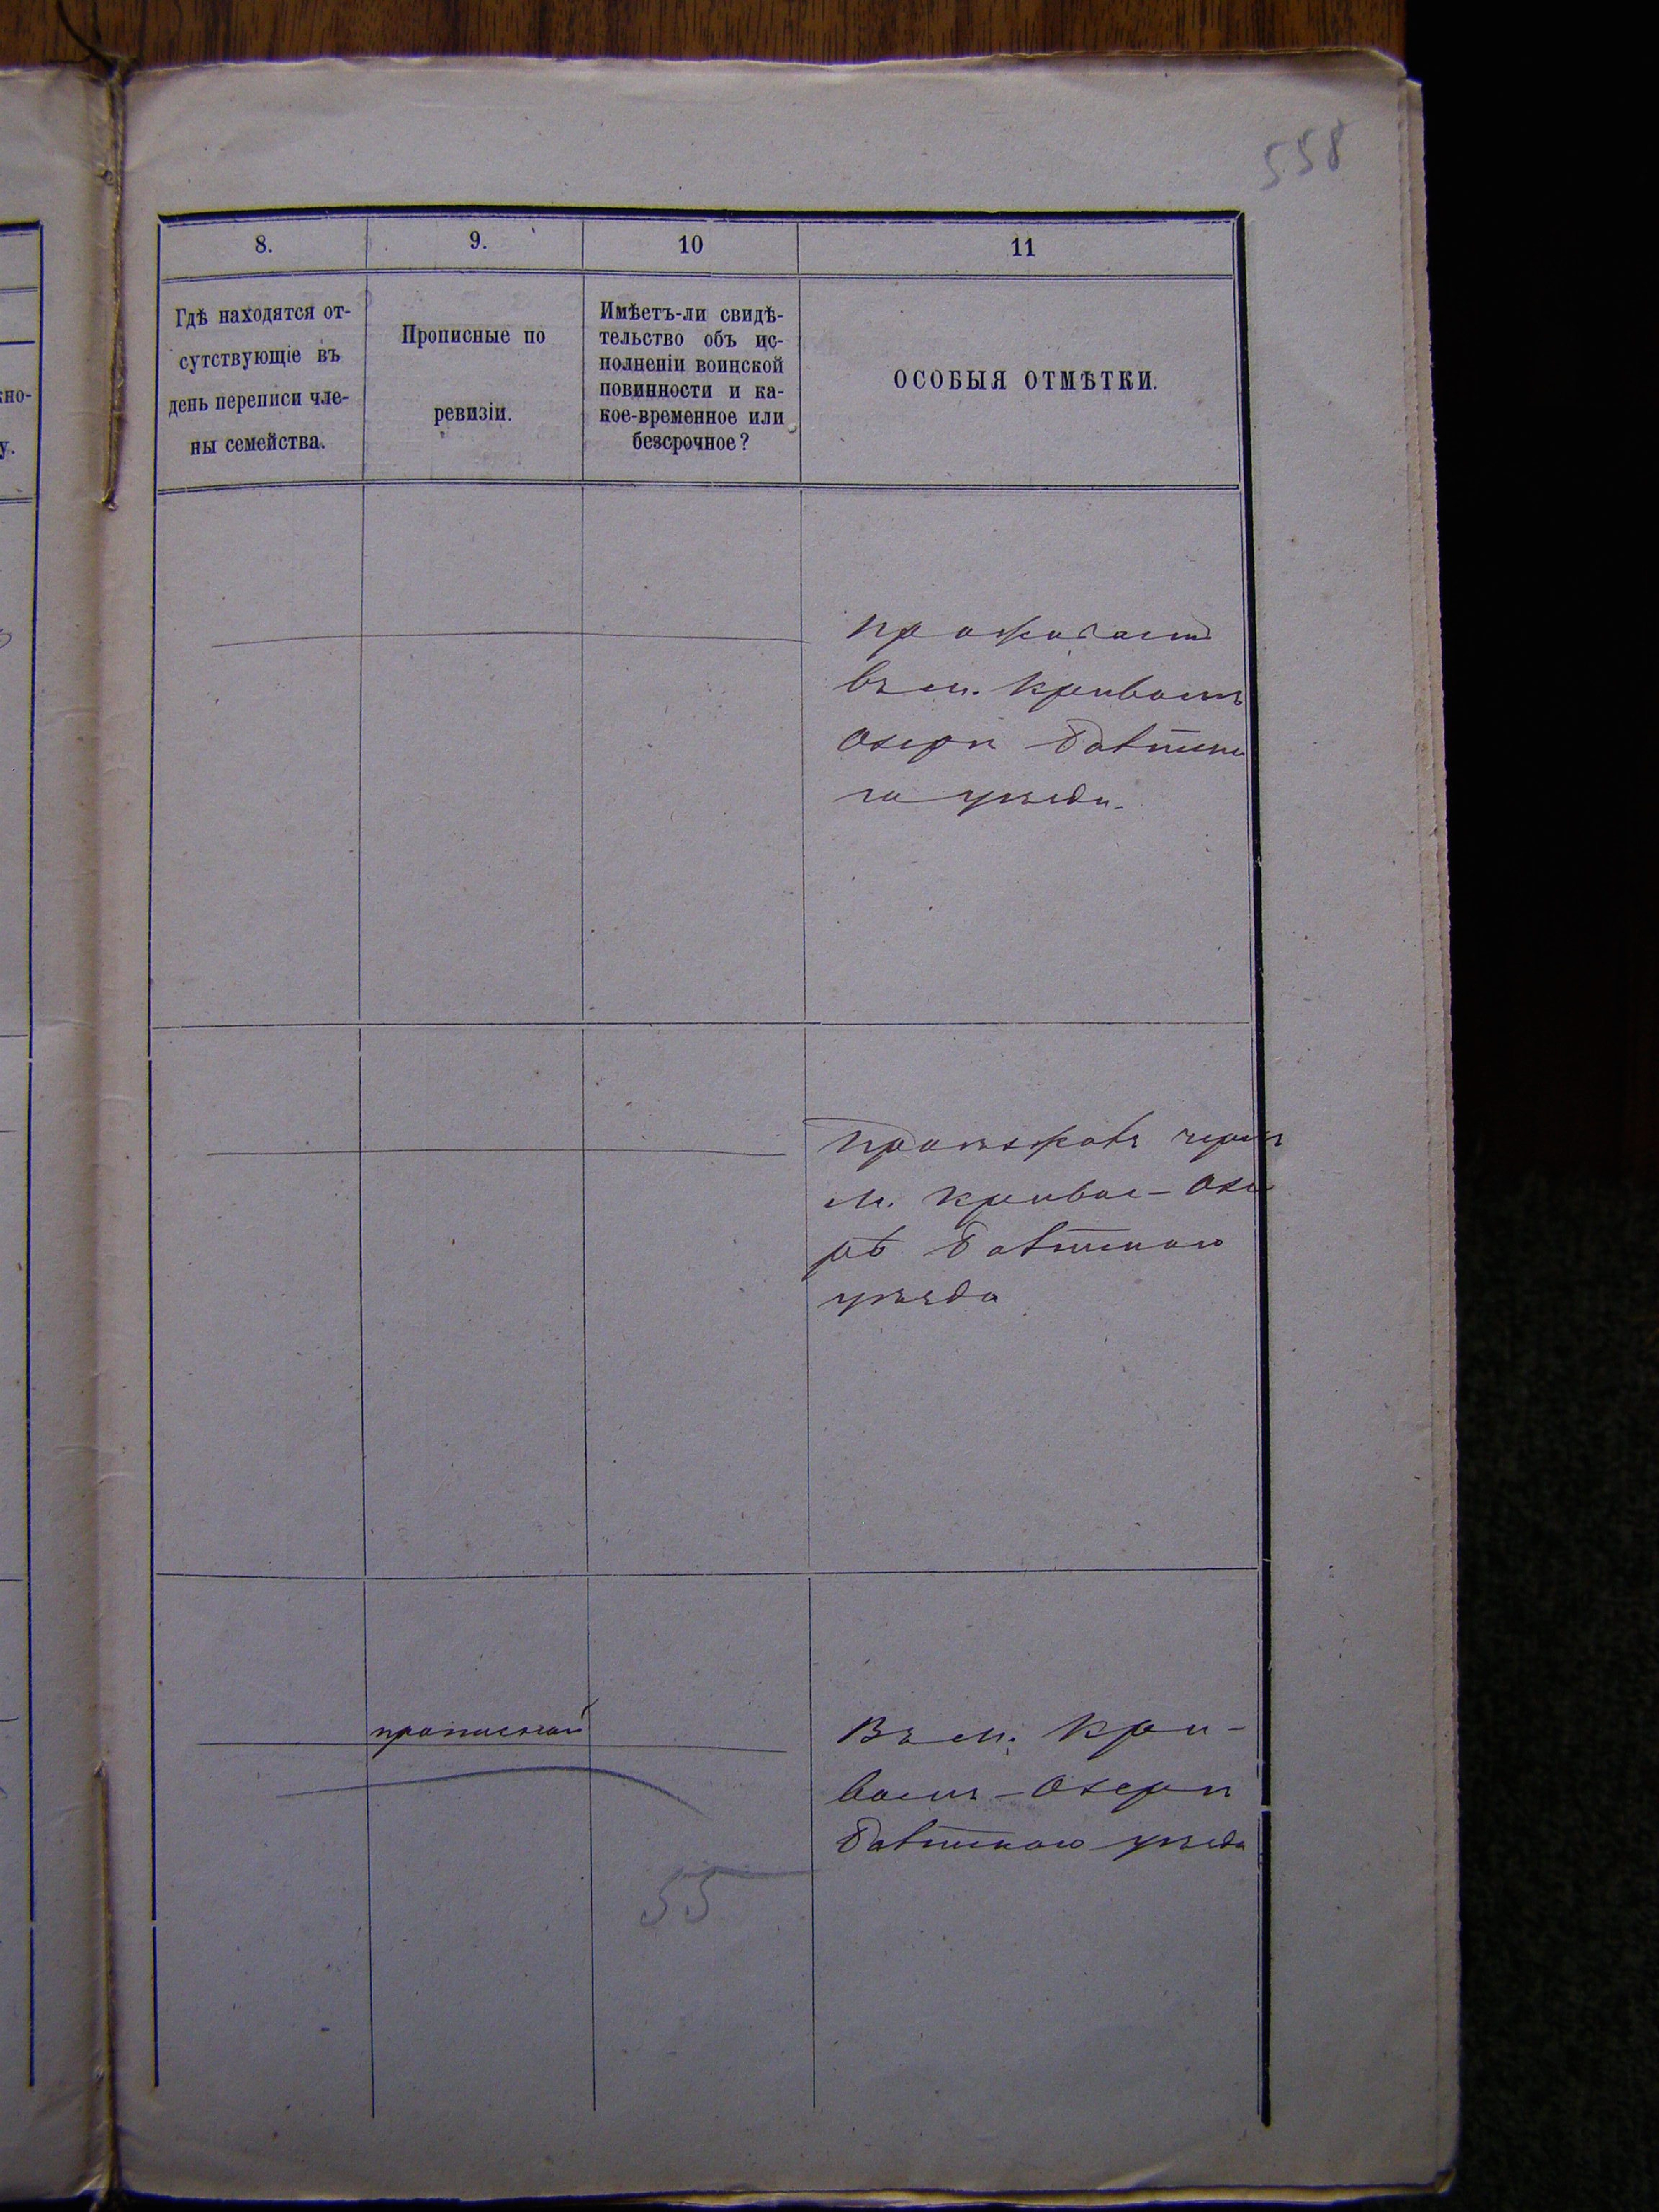 558
8.
9.
10
11
Гдѣ находятся от-
сутствующіе въ
день переписи чле-
ны семейства.
Прописные по
ревизіи.
Имѣетъ-ли свидѣ-
тельство объ ис-
полненіи воинской
повинности и ка-
кое-временное или
безсрочное?
ОСОБЫЯ ОТМѢТКИ.
кно-
у.
проживает
въ м. Кривомъ
Озерѣ Балтска
го уѣзда.
м. Кривое-Озе
ро Балтскаго
уѣзда
прописной
Въ м. Кри-
вомъ-Озерѣ
Балтскаго уѣзда
55